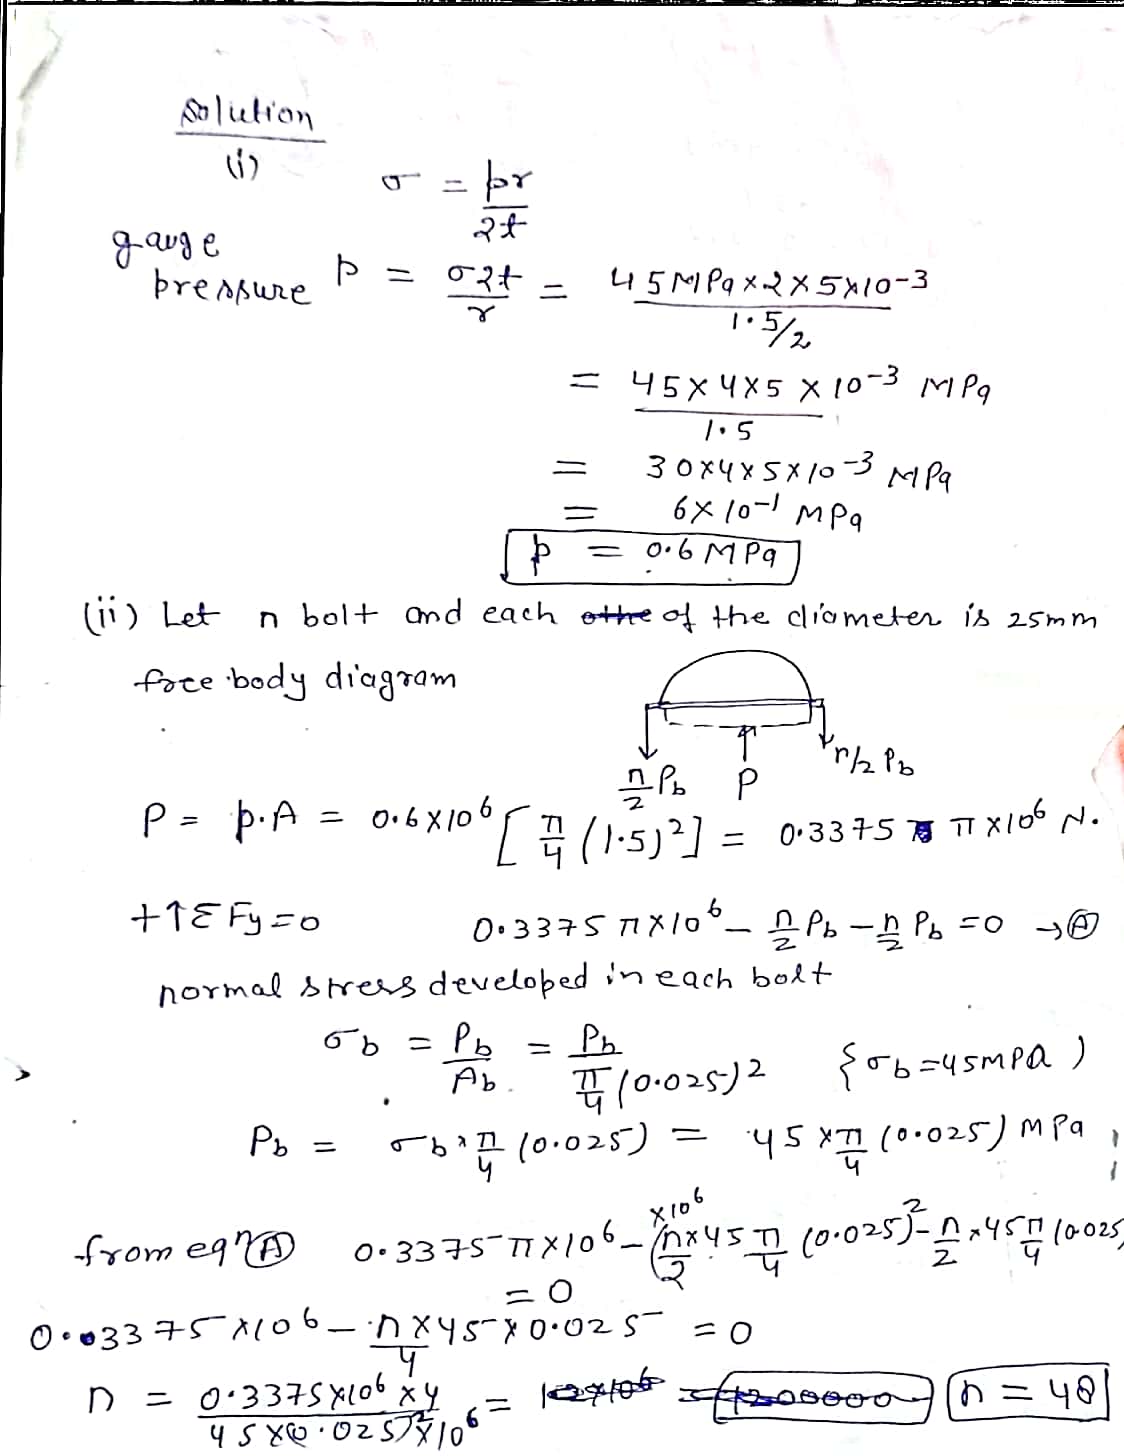 solution
(i)
σ = pr/2t
gauge pressure p = σ2t/r = 45MPa×2×5×10-3/1.5/2
= 45×4×5×10-3/1.5 MPa
= 30×4×5×10-3 MPa
= 6×10-1 MPa
p = 0.6 MPa
(ii) Let n bolt and each of the diameter is 25mm
free body diagram
n/2 Pb P n/2 Pb
P = p.A = 0.6×10^6 [π/4 (1.5)^2] = 0.3375 π×10^6 N.
+↑ΣFy=0 0.3375 π×10^6 - n/2 Pb - n/2 Pb = 0 → Ⓐ
normal stress developed in each bolt
σb = Pb/Ab = Pb/π/4(0.025)^2 {σb=45MPa)
Pb = σb×π/4 (0.025) = 45×π/4 (0.025) MPa
from eqn Ⓐ 0.3375 π×10^6 - (n/2×45 π/4 ×10^6 (0.025)^2 - n/2×45 π/4 (0.025)
= 0
0.03375×10^6 - n×45×0.025/4 = 0
n = 0.3375×10^6×4/45×(0.025)^2×10^6 = n = 48